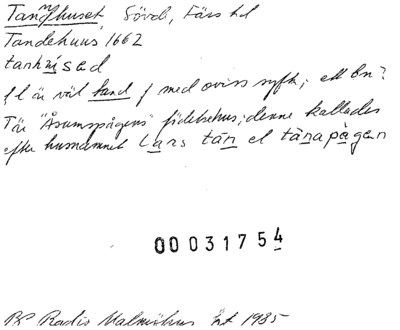 Tanghuset, Sövde, Färs hd
Tandehuus 1662
tanhu̱sed
f l är väl tand f med oviss syft; ett bn?
T är "Åsumspågens" födelsehus; denne kallades
efter husnamnet La̱rs tā̱n el tā̱napå̱gen
00031754
BP Radio Malmöhus ht 1985